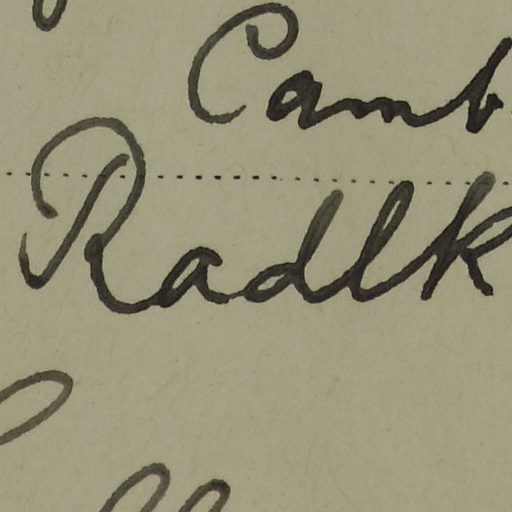 Camb
Radlk